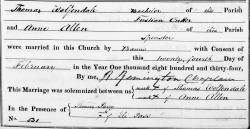 Thomas Wolfendale Bachelor of this Parish
Fustian Cutter
and Anne Allen of this Parish
Spinster
were married in this Church by Banns with Consent of
this Twenty fourth Day of
February in the Year One thousand eight hundred and thirty four,
By me Remington Chaplain
This Marriage was solemnized between us Thomas Wolfendale
Anne Allen
In the Presence of James
No.